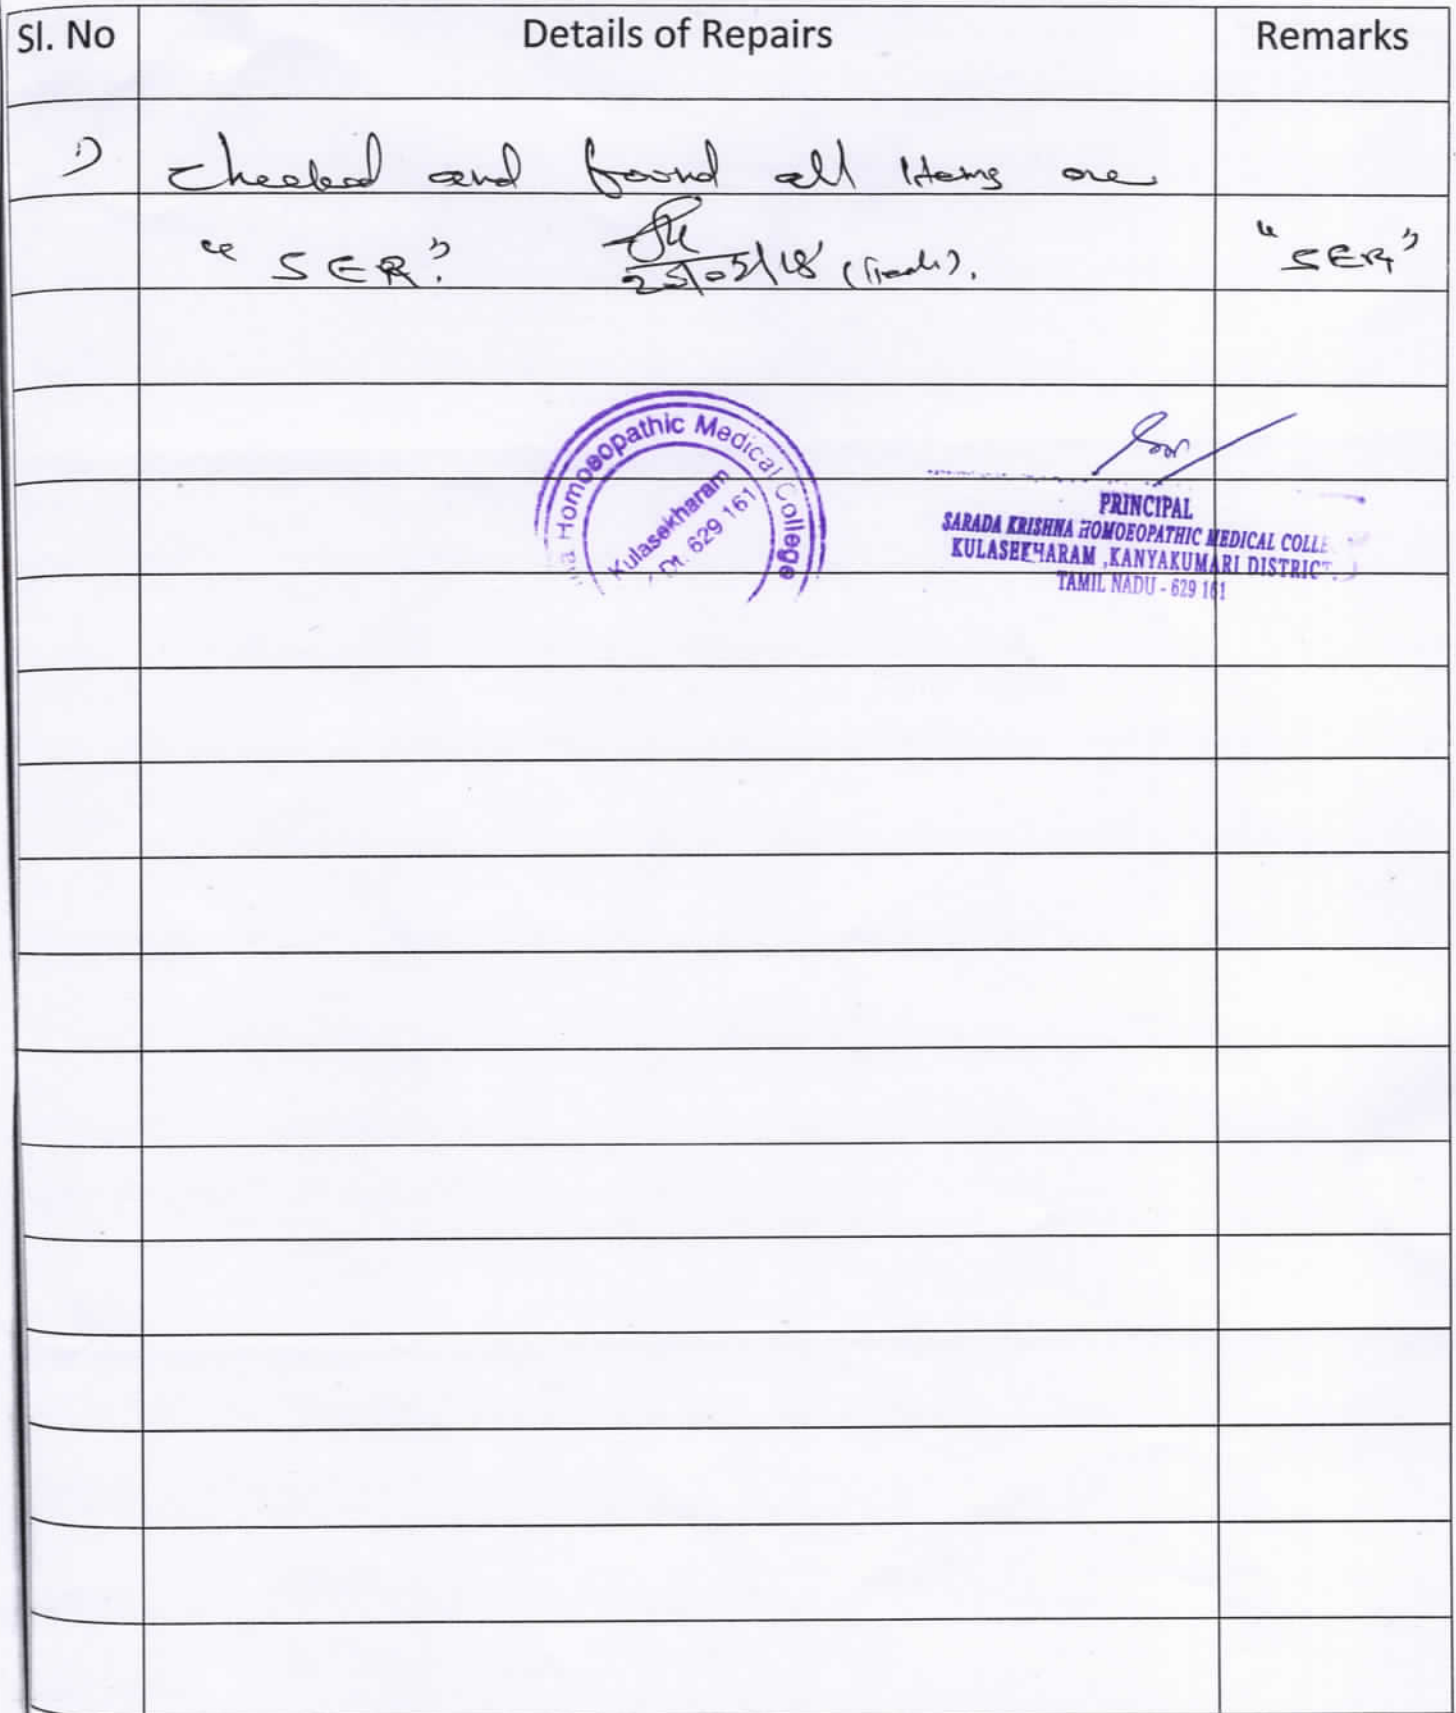 Sl. No Details of Repairs Remarks
1) Checked and found all items are
"SER". 25/05/18 "SER"
Homoeopathic Medical College
Kulasekharam
Dt. 629 161
PRINCIPAL
SARADA KRISHNA HOMOEOPATHIC MEDICAL COLLE
KULASEKHARAM, KANYAKUMARI DISTRICT.
TAMIL NADU - 629 161